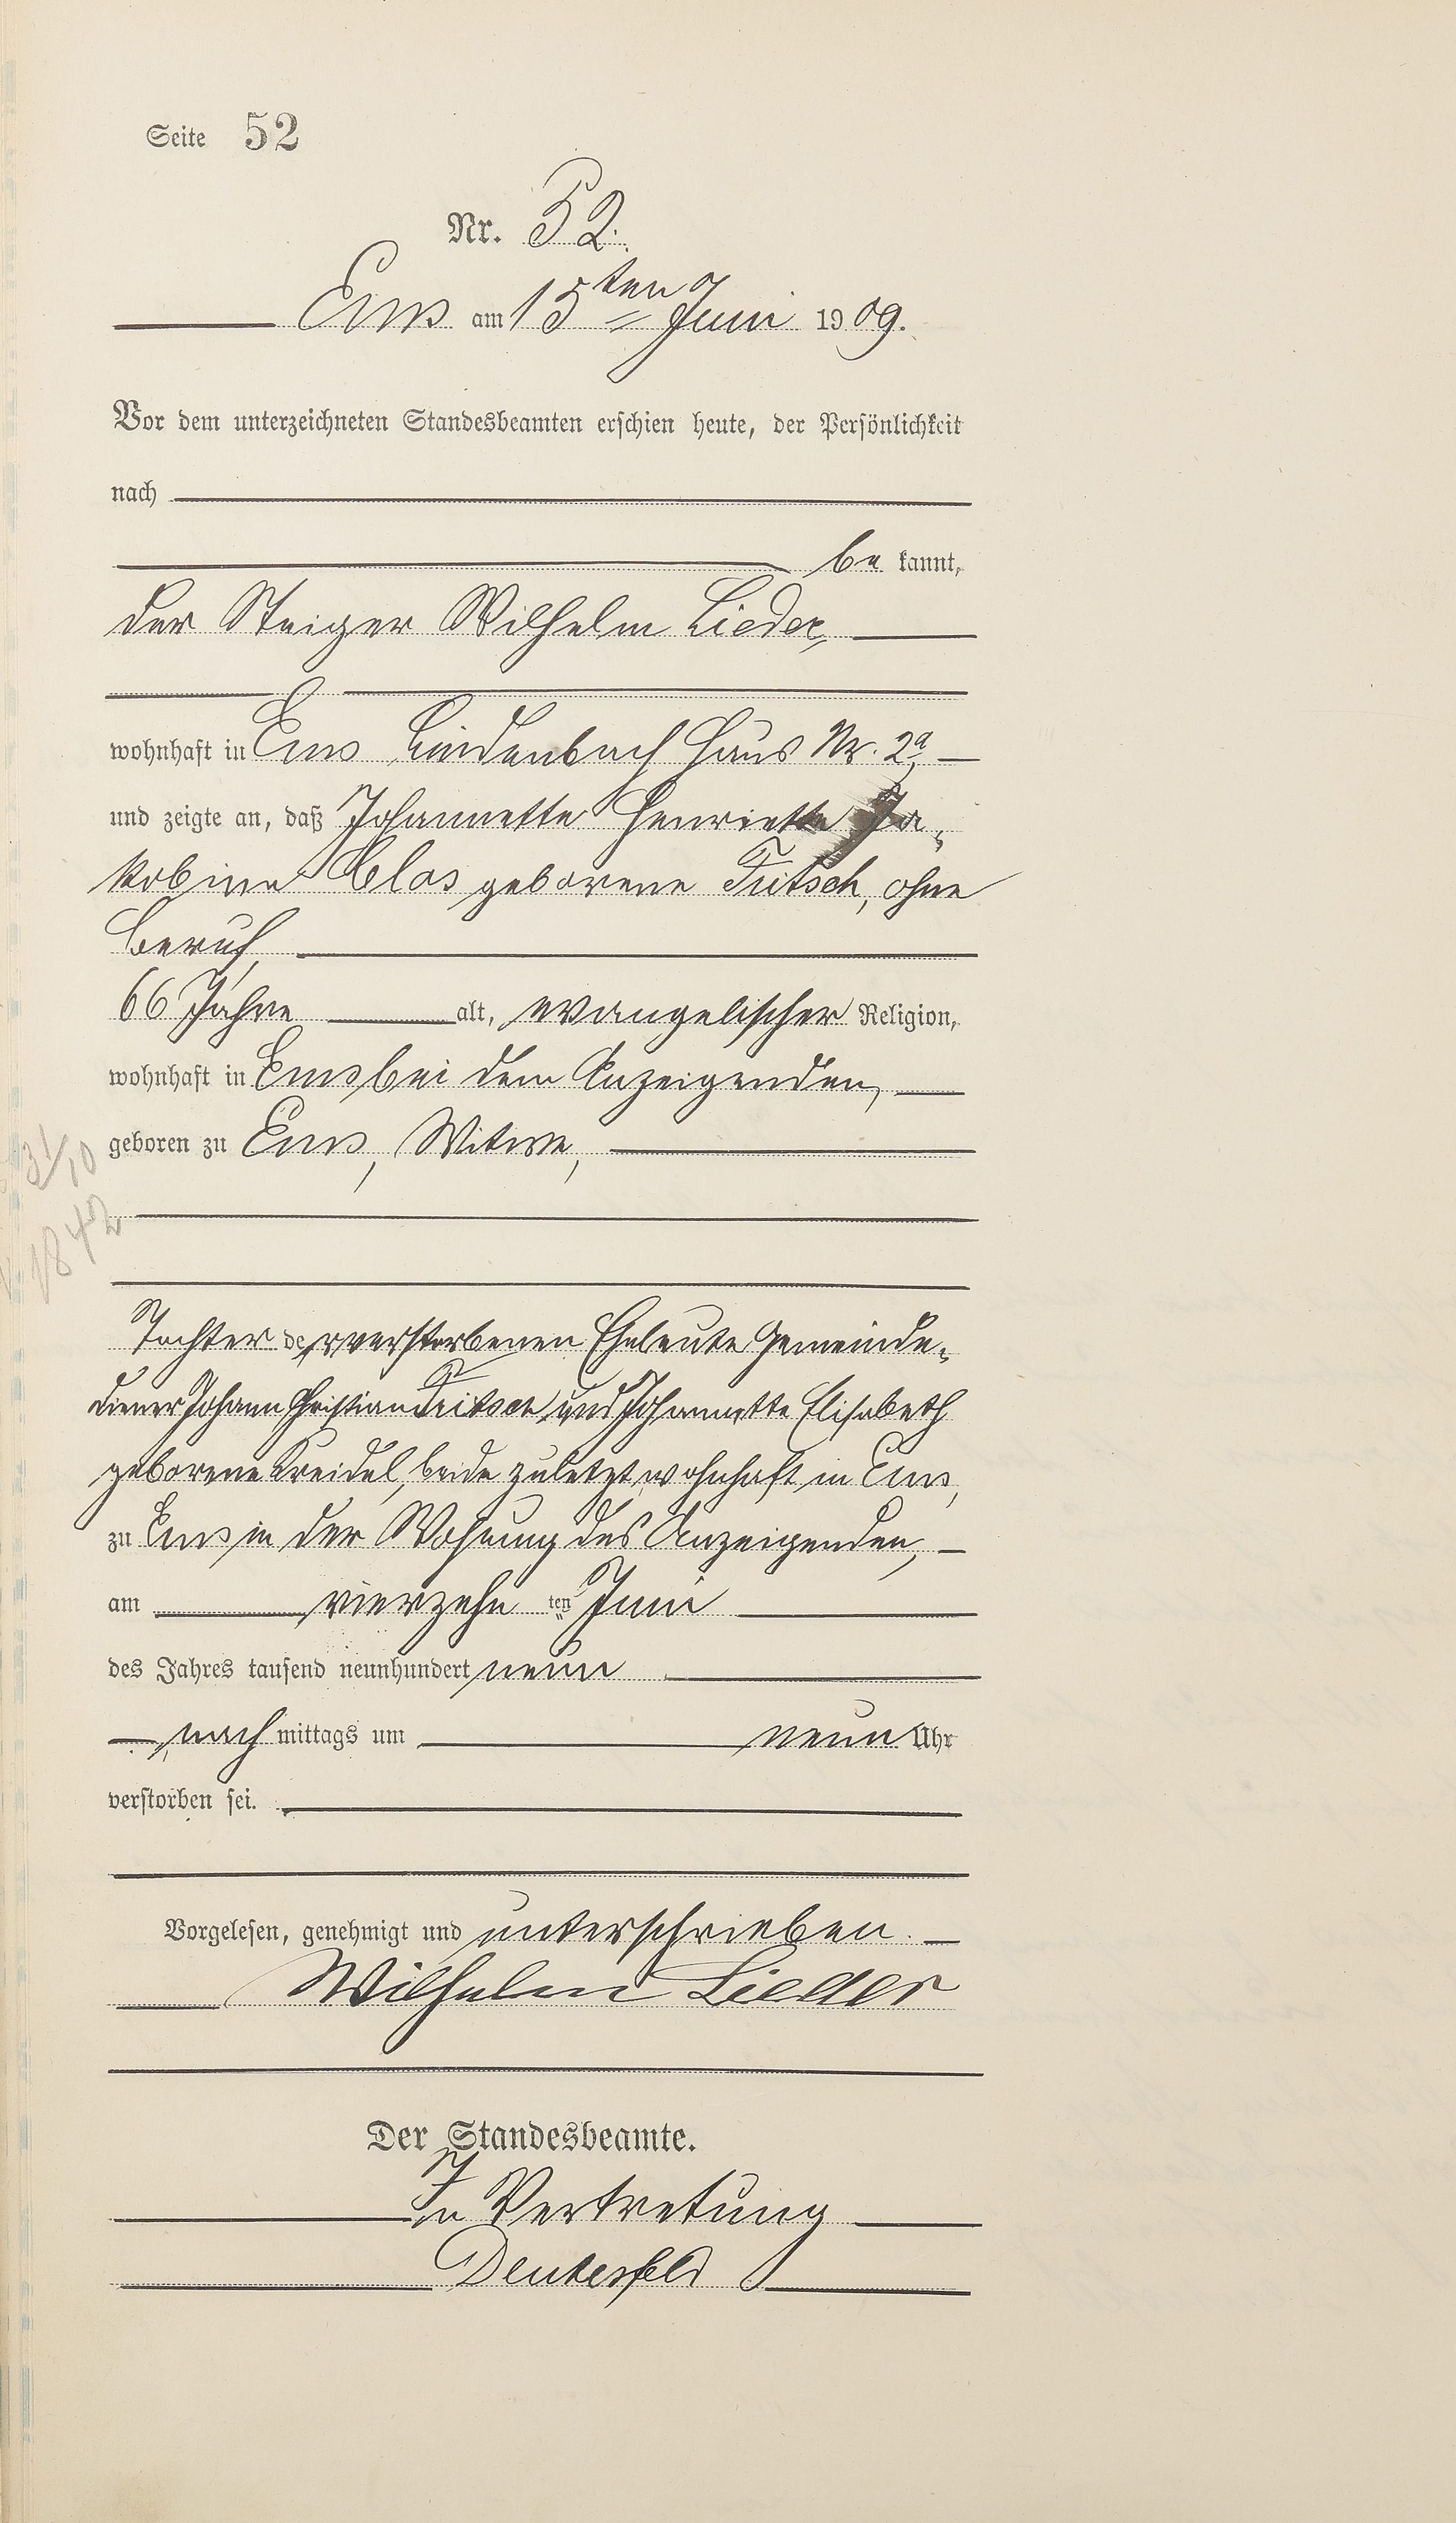 Seite 52
Nr. 52.
Ems am 15ten Juni 1909.
Vor dem unterzeichneten Standesbeamten erschien heute, der Persönlichkeit
nach
be kannt,
der Steiger Wilhelm Lieder,
wohnhaft in Ems Lindenbach Haus Nr. 2a,
und zeigte an, daß Johannette Henriette Ja-
kobine Clos geborene Fritsch, ohne
Beruf,
66 Jahre alt, evangelischer Religion,
wohnhaft in Ems bei dem Anzeigenden,
geboren zu Ems, Witwe,
31/10
1842
Tochter der verstorbenen Eheleute Gemeinde-
diener Johann Christian Fritsch und Johannette Elisabeth
geborene Kreidel, beide zuletzt wohnhaft in Ems,
zu Ems in der Wohnung des Anzeigenden,
am vierzehn ten Juni
des Jahres tausend neunhundert neun
nach mittags um neun Uhr
verstorben sei.
Vorgelesen, genehmigt und unterschrieben.
Wilhelm Lieder
Der Standesbeamte.
In Vertretung